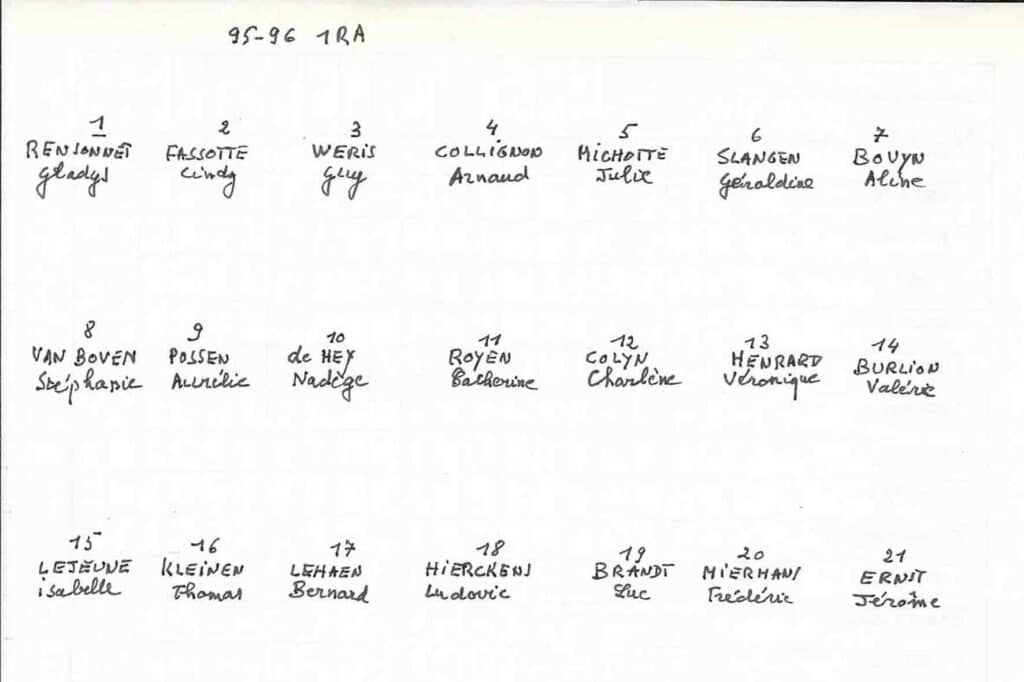 95-96 1RA
1 2 3 4 5 6 7
RENSONNET FASSOTTE WERIS COLLIGNON MICHOTTE SLANGEN BOUYN
Gladys Cindy Guy Arnaud Julie Géraldine Aline
8 9 10 11 12 13 14
VAN BOVEN POSSEN de HEY ROYEN COLYN HENRARD BURLION
Stéphanie Aurélie Nadège Catherine Charlène Véronique Valérie
15 16 17 18 19 20 21
LEJEUNE KLEINEN LEHAEN HIERCKENS BRANDT MIERMANS ERNST
isabelle Thomas Bernard Ludovic Luc Frédéric Jérôme